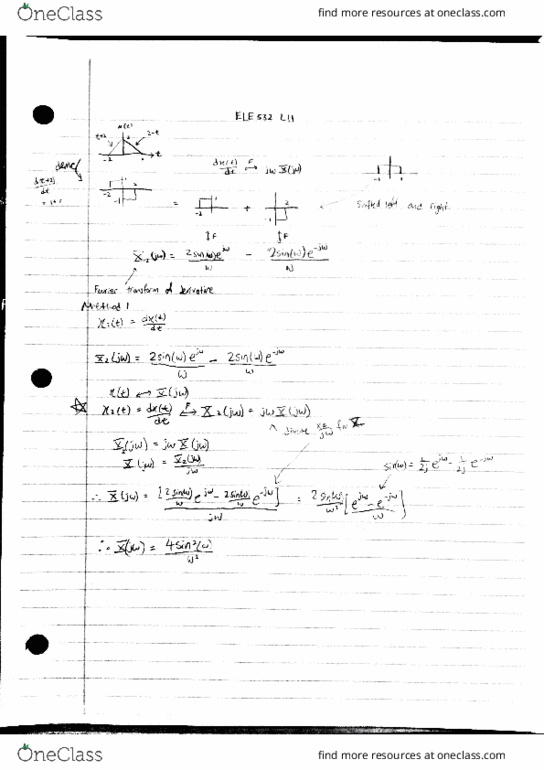 OneClass
find more resources at oneclass.com
ELE 532 L11
x(t)
t+2
2-t
2
-2
t
derive
d(t+2)/dt
dx(t)/dt F↔ jω X(jω)
-1 1
1
-1
= -2 1 + 2 -1
Shifted left and right
↕F ↕F
X₂(jω) = 2sin(ω)e^{jω}/ω - 2sin(ω)e^{-jω}/ω
Fourier transform of derivative
Method 1
x₂(t) = dx(t)/dt
X₂(jω) = 2sin(ω)e^{jω}/ω - 2sin(ω)e^{-jω}/ω
x(t) ↔ X(jω)
x₂(t) = dx(t)/dt F↔ X₂(jω) = jω X(jω)
^ divide X₂/jω for X
X₂(jω) = jω X(jω)
X(jω) = X₂(jω)/jω
sin(ω) = 1/2j e^{jω} - 1/2j e^{-jω}
∴ X(jω) = [2sin(ω)/ω e^{jω} - 2sin(ω)/ω e^{-jω}]/jω = 2sin(ω)/ω² [e^{jω} - e^{-jω}/ω]
∴ X(jω) = 4sin²(ω)/ω²
OneClass
find more resources at oneclass.com